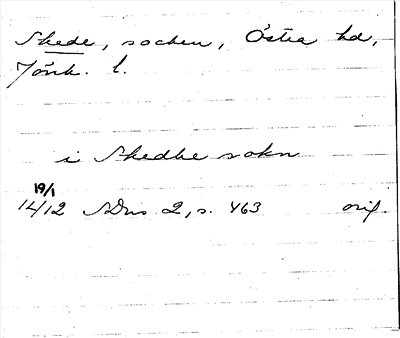 Skede, socken, Östra hd,
Jönk. l.
i Skedhe sokn
19/1
1412 SDns 2, s. 463 orig.